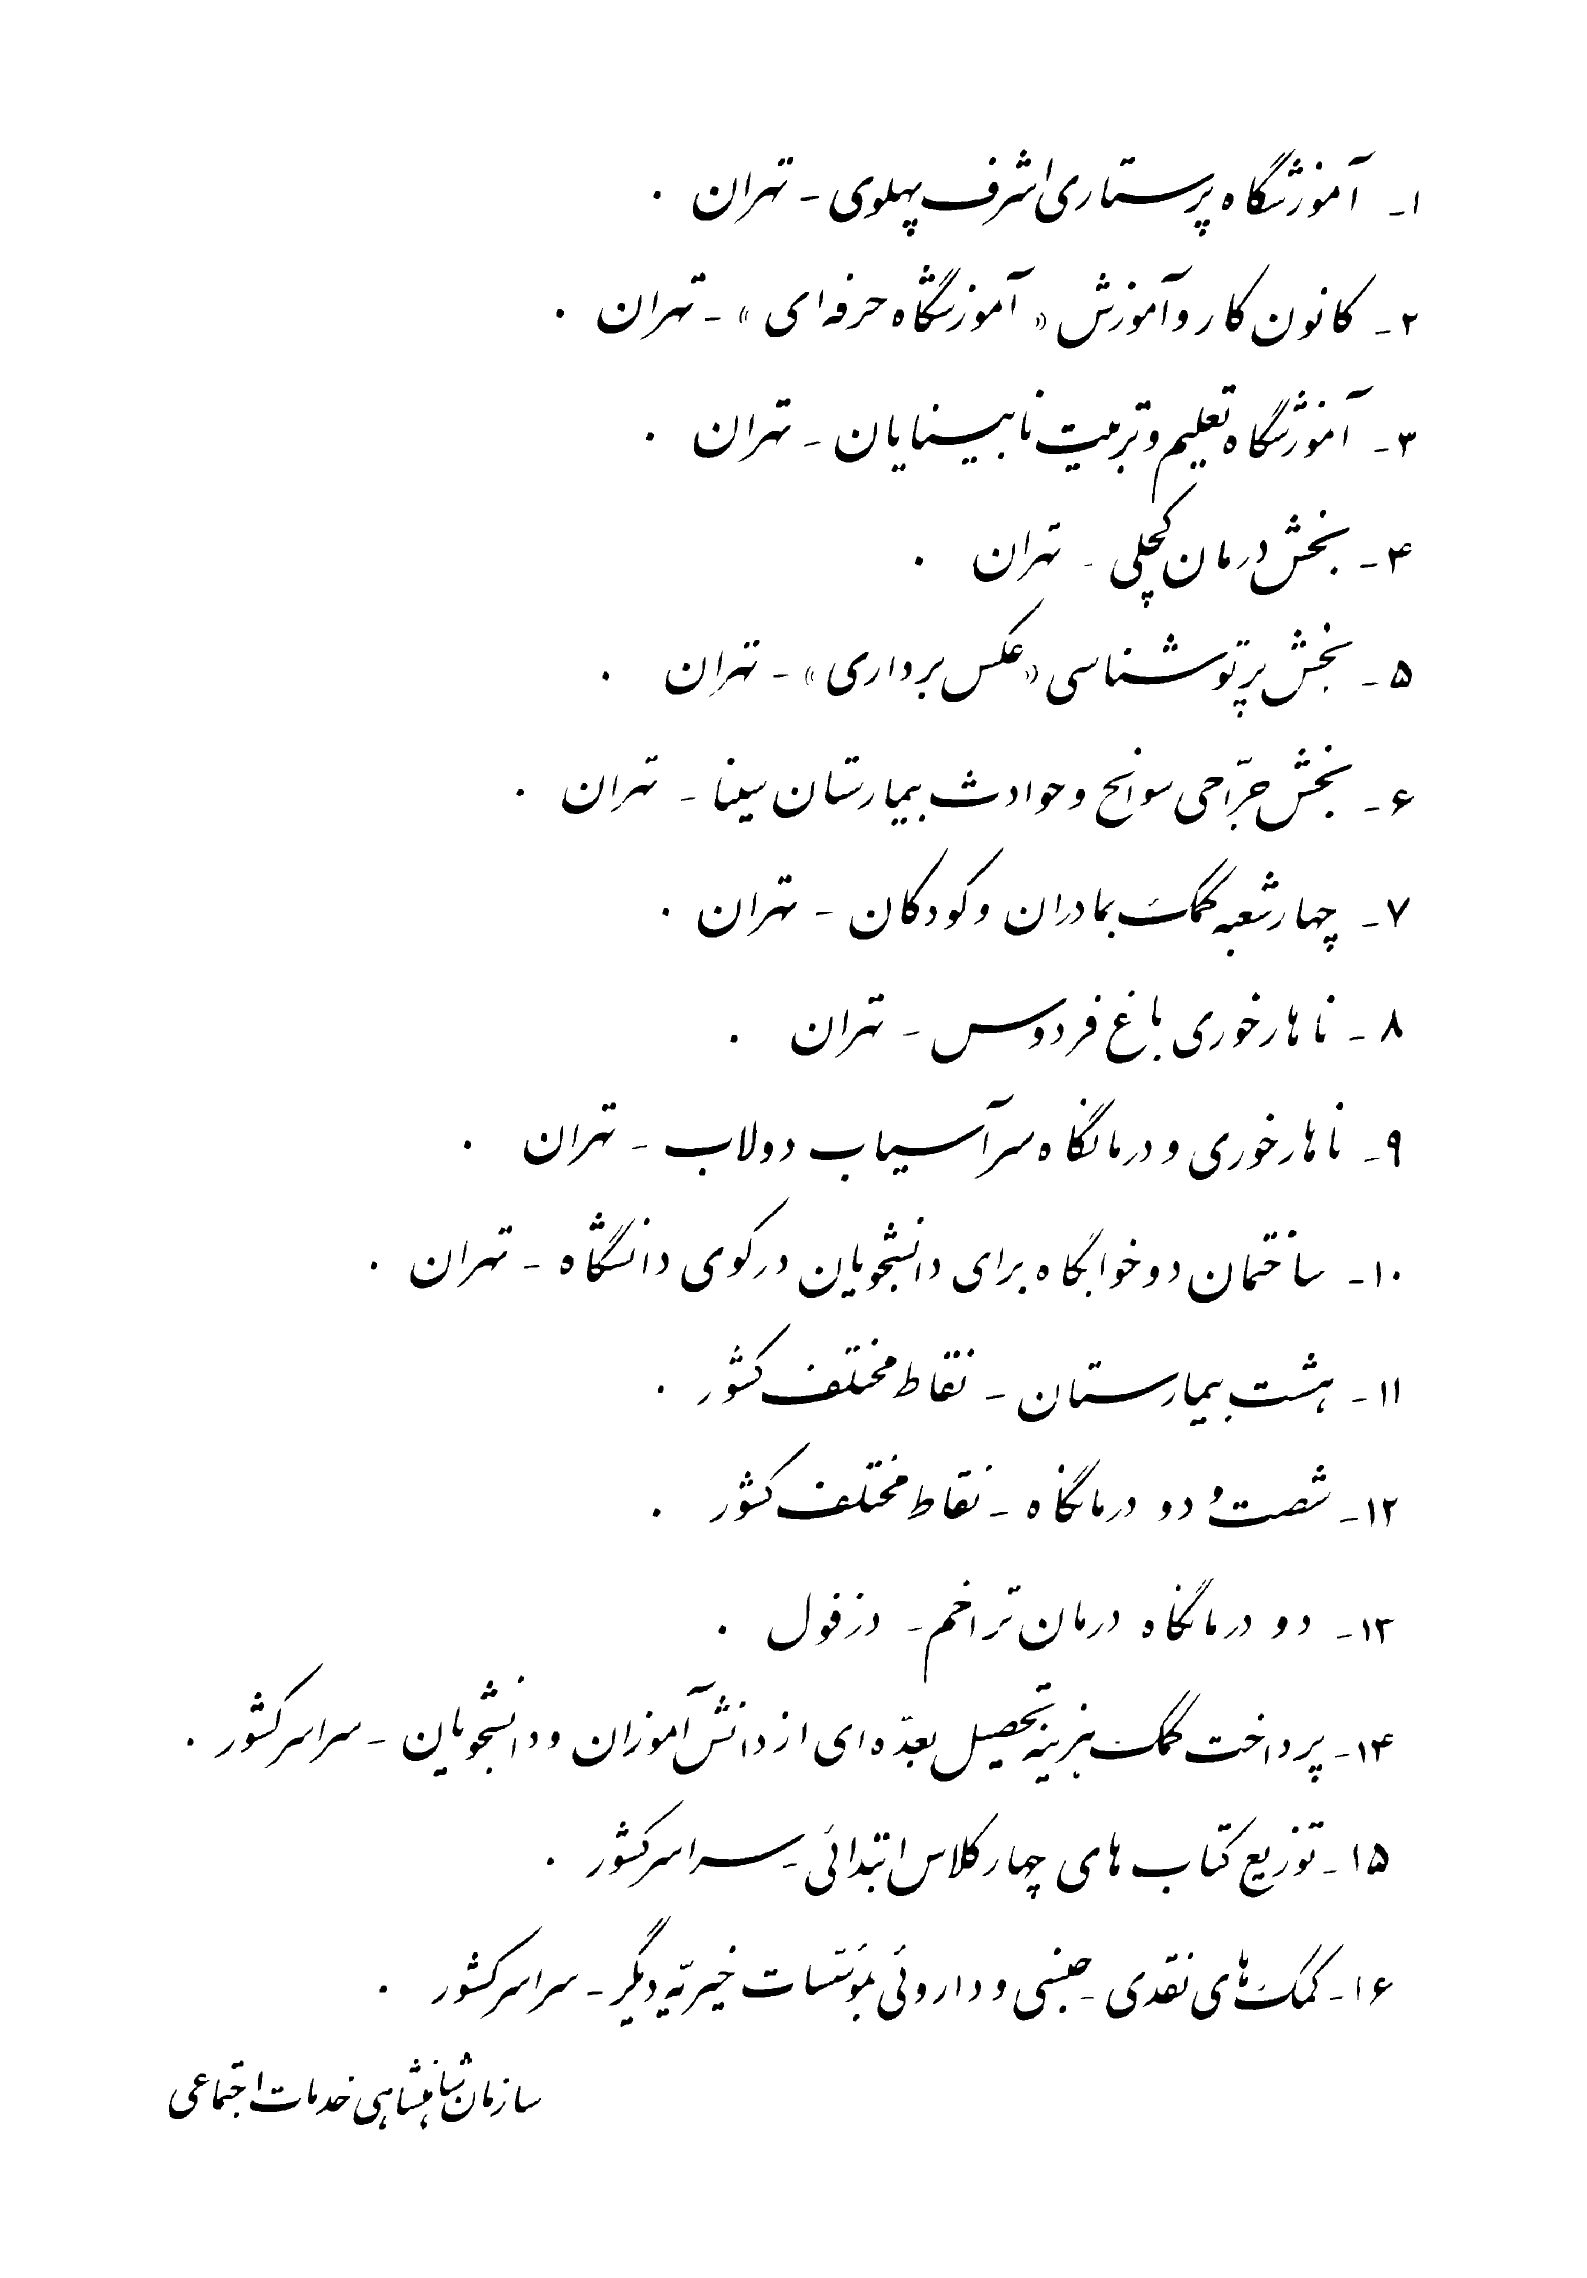 ۱- آموزشگاه پرستاری اشرف پهلوی - تهران .
۲- کانون کار و آموزش « آموزشگاه حرفه ای » - تهران .
۳- آموزشگاه تعلیم و تربیت نابینایان - تهران .
۴- بخش درمان کچلی - تهران .
۵- بخش پرتوشناسی « عکس برداری » - تهران .
۶- بخش جرّاحی سوانح و حوادث بیمارستان سینا - تهران .
۷- چهار شعبه کمک بمادران و کودکان - تهران .
۸- ناهارخوری باغ فردوس - تهران .
۹- ناهارخوری و درمانگاه سرآسیاب دولاب - تهران .
۱۰- ساختمان دو خوابگاه برای دانشجویان در کوی دانشگاه - تهران .
۱۱- هشت بیمارستان - نقاط مختلف کشور .
۱۲- شصت و دو درمانگاه - نقاط مختلف کشور .
۱۳- دو درمانگاه درمان تراخم - دزفول .
۱۴- پرداخت کمک هزینه تحصیل بعدّه ای از دانش آموزان و دانشجویان - سراسر کشور .
۱۵- توزیع کتاب های چهار کلاس ابتدائی - سراسر کشور .
۱۶- کمک های نقدی - جنسی و داروئی بمؤسّسات خیریّه دیگر - سراسر کشور .
سازمان شاهنشاهی خدمات اجتماعی